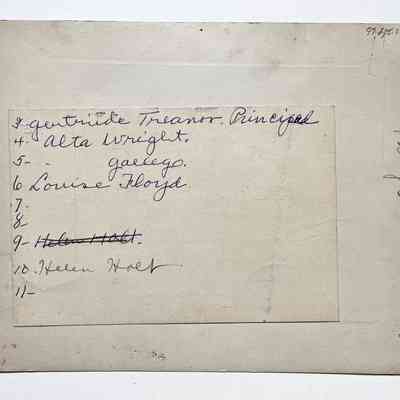 3- Gertrude Treanor. Principal
4- Alta Wright.
5- " Gallego.
6 Louise Floyd
7-
8-
9- Helen Holt.
10. Helen Holt
11-